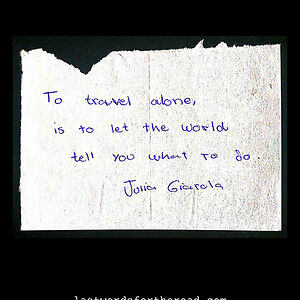 To travel alone,
is to let the world
tell you what to do.
Julia Giarola
lastwordsfortheroad.com